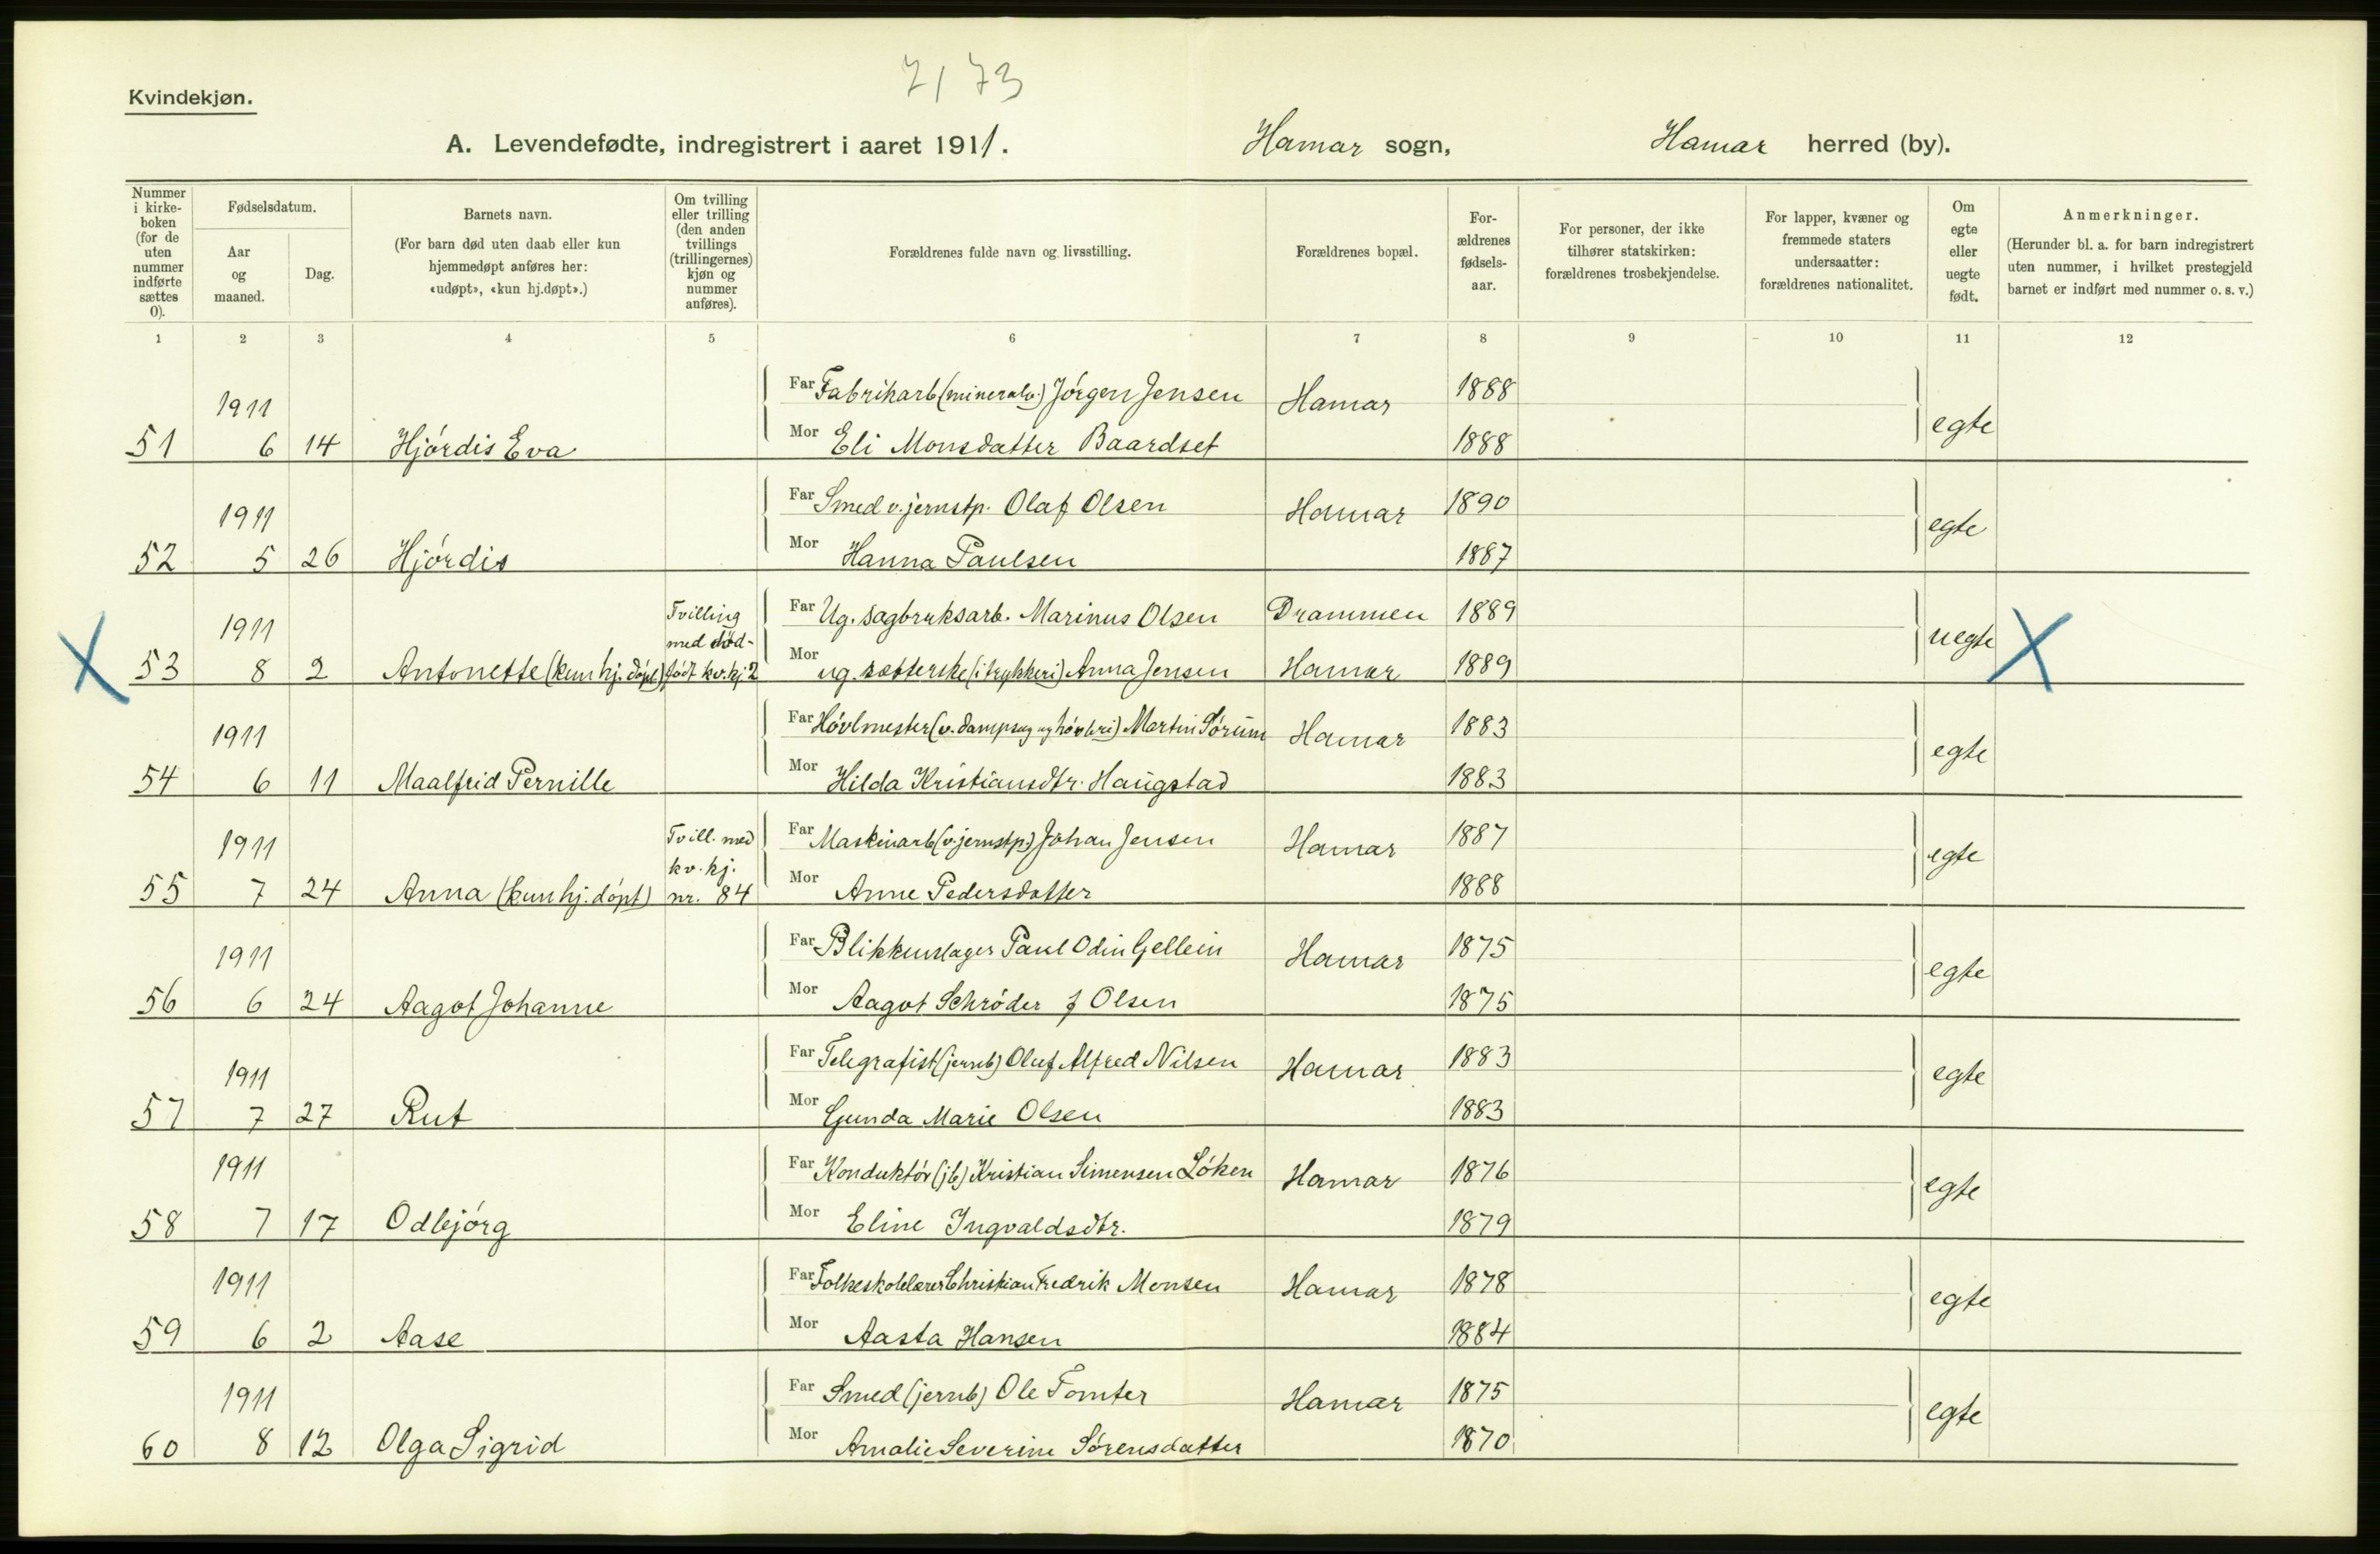 7/73
Kvindekjøn.
A. Levendefødte, indregistrert i aaret 1911. Hamar sogn, Hamar herred (by).
Nummer i kirke-boken (for de uten nummer indførte sættes 0).
Fødselsdatum.
Aar og maaned.
Dag.
Barnets navn.
(For barn død uten daab eller kun hjemmedøpt anføres her: «udøpt», «kun hj.døpt».)
Om tvilling eller trilling (den anden tvillings (trillingernes) kjøn og nummer anføres).
Forældrenes fulde navn og livsstilling.
Forældrenes bopæl.
For-ældrenes fødsels-aar.
For personer, der ikke tilhører statskirken: forældrenes trosbekjendelse.
For lapper, kvæner og fremmede staters undersaatter: forældrenes nationalitet.
Om egte eller uegte født.
Anmerkninger.
(Herunder bl. a. for barn indregistrert uten nummer, i hvilket prestegjeld barnet er indført med nummer o. s. v.)
1 2 3 4 5 6 7 8 9 10 11 12
1911 Far Fabrikarb (mineralv.) Jörgen Jensen Hamar 1888 egte
51 6 14 Hjördis Eva Mor Eli Monsdatter Baardset 1888
1911 Far Smed v. jernstp. Olaf Olsen Hamar 1890 egte
52 5 26 Hjördis Mor Hanna Paulsen 1887
1911 Tvilling med död- Far Ug. sagbruksarb. Marinus Olsen Drammen 1889 uegte
X 53 8 2 Antonette (kun hj. döpt) födt kv. kj 2 Mor ug. sætterske (i trykkeri) Anna Jensen Hamar 1889 X
1911 Far Hövlmester (v. dampsag og hövleri) Martin Sörum Hamar 1883 egte
54 6 11 Maalfrid Pernille Mor Hilda Kristiansdtr. Haugstad 1883
1911 Tvill. med kv. kj. Far Maskinarb (v. jernstp.) Johan Jensen Hamar 1887 egte
55 7 24 Anna (kun hj. döpt) nr. 84 Mor Anne Pedersdatter 1888
1911 Far Blikkenslager Paul Odin Gellein Hamar 1875 egte
56 6 24 Aagot Johanne Mor Aagot Schröder f Olsen 1875
1911 Far Telegrafist (jernb) Oluf Alfred Nilsen Hamar 1883 egte
57 7 27 Rut Mor Gunda Marie Olsen 1883
1911 Far Konduktör (jb) Kristian Simensen Löken Hamar 1876 egte
58 7 17 Odbjörg Mor Eline Ingvaldsdtr. 1879
1911 Far Folkeskolelærer Christian Fredrik Monsen Hamar 1878 egte
59 6 2 Aase Mor Aasta Hansen 1884
1911 Far Smed (jernb) Ole Tomter Hamar 1875 egte
60 8 12 Olga Sigrid Mor Amalie Severine Sörensdatter 1870